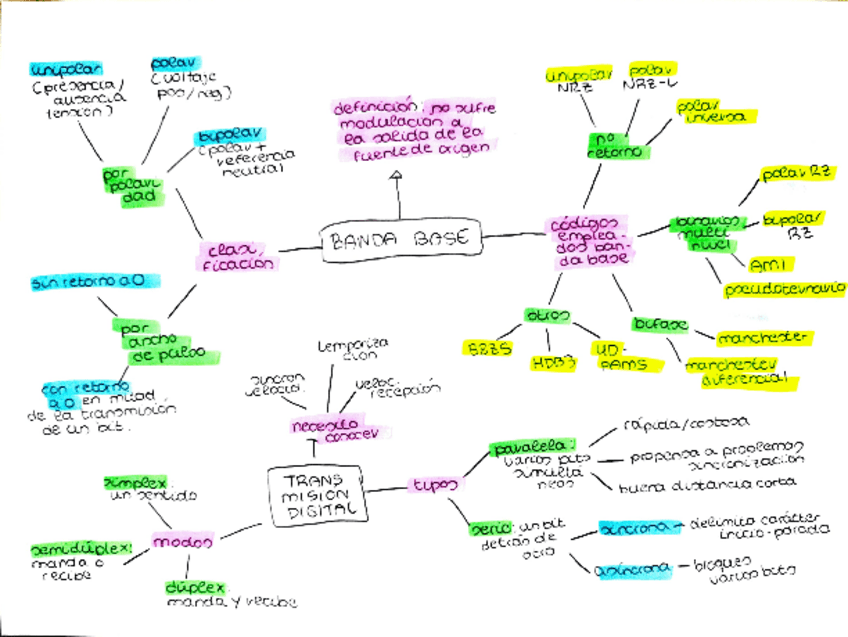 unipolar
(presencia/
ausencia
tensión)
polar
(voltaje
pos/neg)
bipolar
(polar +
referencia
neutral
por
polari
dad
clasi
ficación
sin retorno a 0
por
ancho
de pulso
con retorno
a 0 en mitad
de la transmisión
de un bit.
definición: no sufre
modulación a
la salida de la
fuente de origen
BANDA BASE
códigos
emplea-
dos ban-
da base
no
retorno
unipolar
NRZ
polar
NRZ-L
polar
inversa
binarios
multi
nivel
polar RZ
bipolar
RZ
AMI
pseudoternario
bifase
manchester
manchester
diferencial
otros
HDB3
necesito
conocer
sincron
velocid.
temporiza
ción
veloc.
recepción
TRANS
MISION
DIGITAL
modos
simplex:
un sentido
semidúplex:
manda o
recibe
dúplex:
manda y recibe
tipos
paralela:
varios bits
simultá
neos
rápida/costosa
propensa a problemas
sincronización
buena distancia corta
serie: un bit
detrás de
otro
síncrona – delimita carácter
inicio-parada
asíncrona – bloques
varios bits